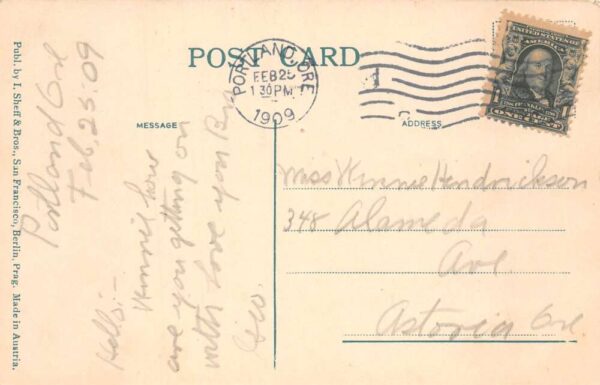 Publ. by I. Sheff & Bros., San Francisco, Berlin, Prag. Made in Austria.
POST CARD
PORTLAND, ORE
FEB 25
130PM
1909
UNITED STATES OF
AMERICA
1
1
ONE CENT
MESSAGE
ADDRESS
Portland Ore
Feb, 25-09
Hello:-
Winnie how
are you getting on
with your
Geo.
Miss Winnie Hendrickson
348 Alameda
Ave.
Astoria Ore